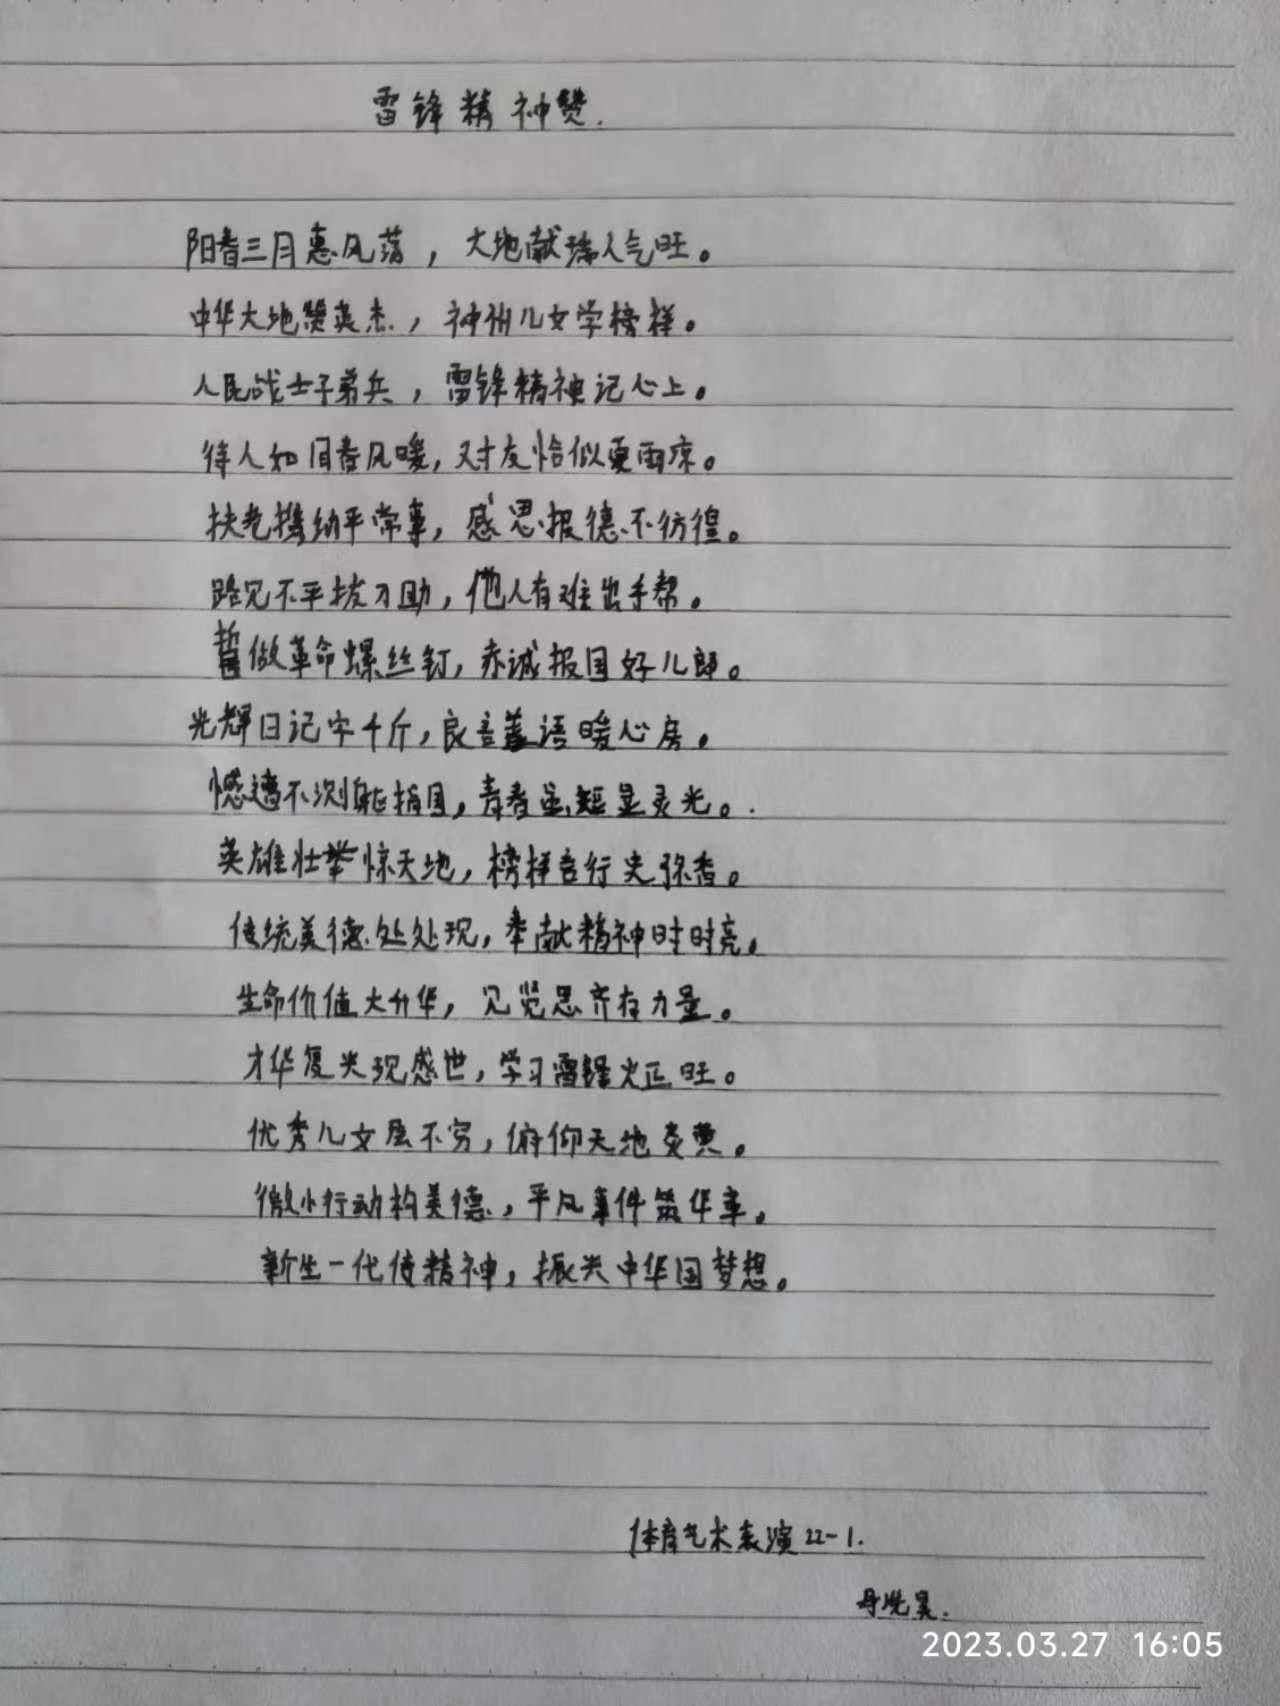 雷锋精神赞.
阳春三月惠风荡，大地献瑞人气旺。
中华大地赞英杰，神州儿女学榜样。
人民战士子弟兵，雷锋精神记心上。
待人如同春风暖，对友恰似夏雨凉。
扶老携幼平常事，感恩报德不彷徨。
路见不平拔刀助，他人有难出手帮。
誓做革命螺丝钉，赤诚报国好儿郎。
光辉日记字千斤，良言善语暖心房。
憾遭不测躯捐国，青春虽短显灵光。
英雄壮举惊天地，榜样言行史弥香。
传统美德处处现，奉献精神时时亮。
生命价值大升华，见贤思齐有力量。
才华复兴现盛世，学习雷锋火正旺。
优秀儿女层不穷，俯仰天地炎黄。
微小行动构美德，平凡事件筑华章。
新生一代传精神，振兴中华国梦想。
体育艺术表演22-1.
2023.03.27 16:05